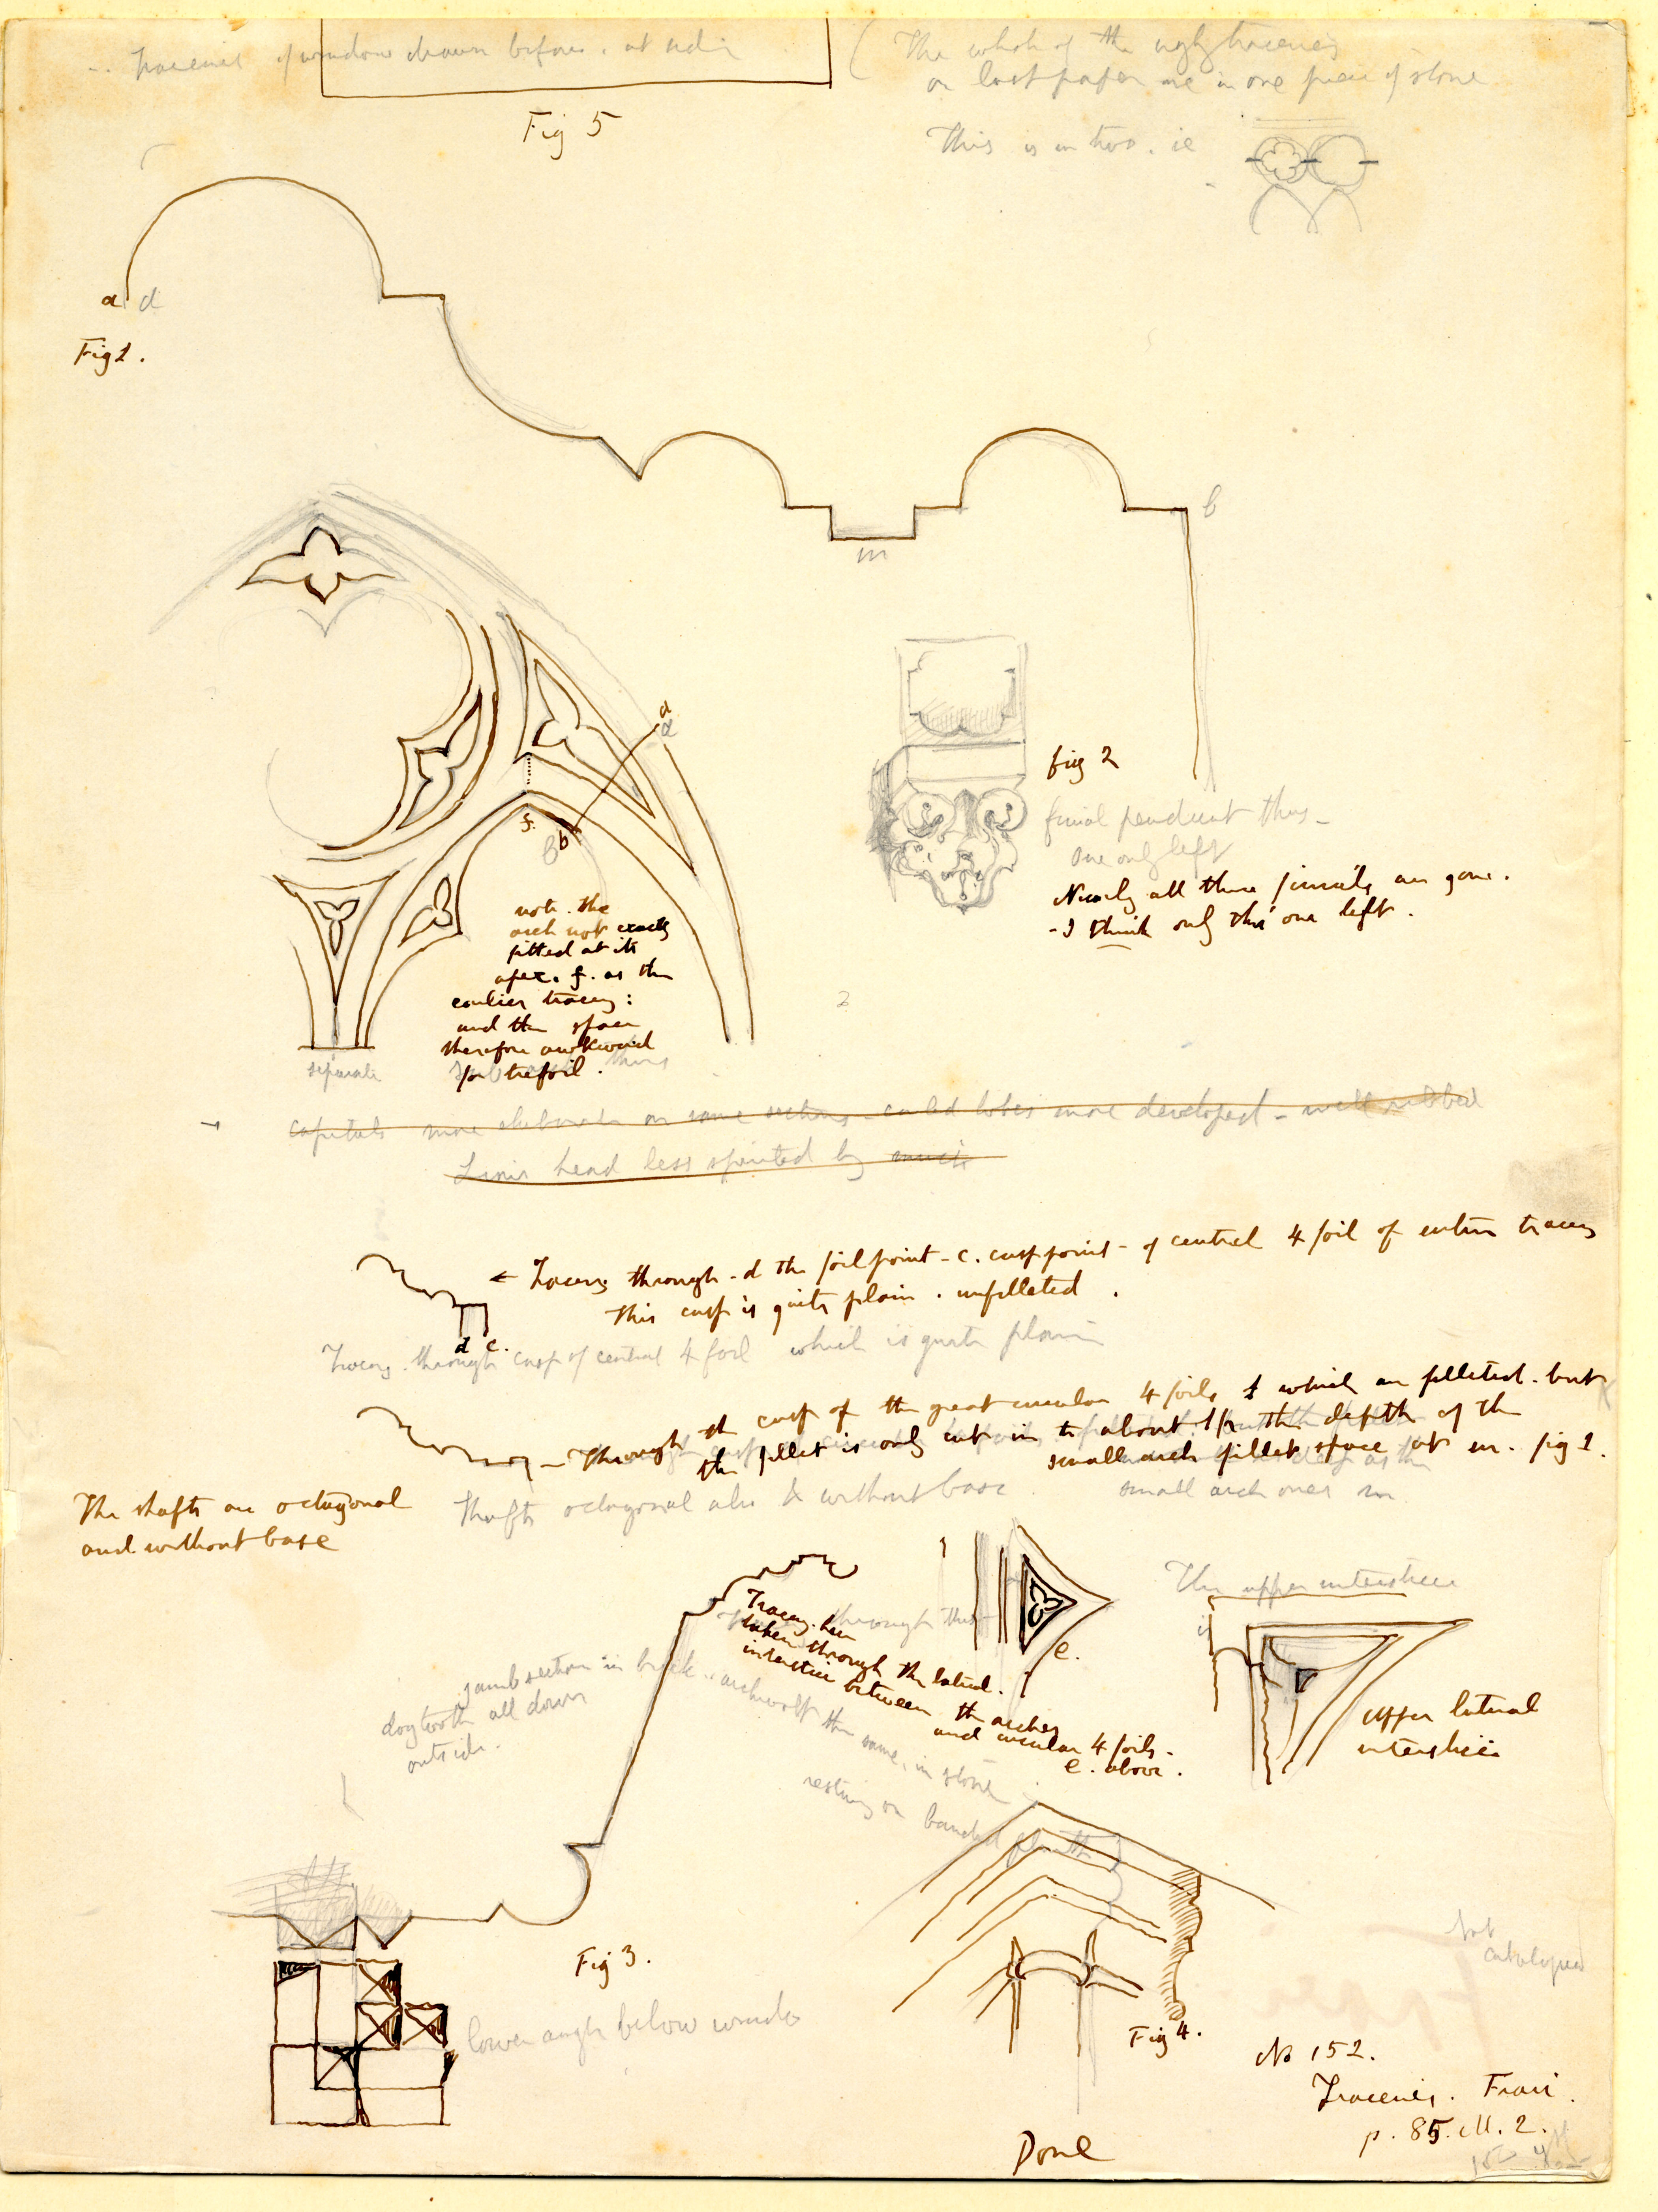 Traceries of window drawn before. at
(The whole of the ugly traceries
on last paper are in one piece of stone
This is in two. ie
Fig 5
a d
Fig 1.
b
m
a
d
f.
b b
fig 2
finial pendent thus -
one only left
Nearly all these finials are gone.
- I think only this one left.
note. the
arch not exactly
fitted at its
apex. f. as the
earlier tracery:
and the space
therefore awkward
for trefoil.
separate
thus
2
capitals more elaborate on same curled lobes more developed - well ribbed
Lions head less spirited by much
← Tracery through - d the foil point - c. cusp point - of central 4 foil of entire tracery
This cusp is quite plain. unfilleted.
d c.
Tracery. through cusp of central 4 foil which is quite plain
- Through the cusp of the great circular 4 foils, which are filleted. but
the fillet is only cut in to about 1/2 the depth of the
small arch fillet space at m. fig 1.
small arch ones m.
The shafts are octagonal
and without base
Shafts octagonal also & without base.
The upper interstice
Tracery. here
taken through the lateral.
interstice between the arches
and circular 4 foils -
e. above.
through this
e.
upper lateral
interstice
jamb section in brick. archivolt the same, in stone
resting on banded plinth
dogtooth all down
outside.
Fig 3.
lower angle below window
Fig 4.
Not
catalogued
Frari
No 152.
Traceries. Frari.
p. 85. M. 2.
Done